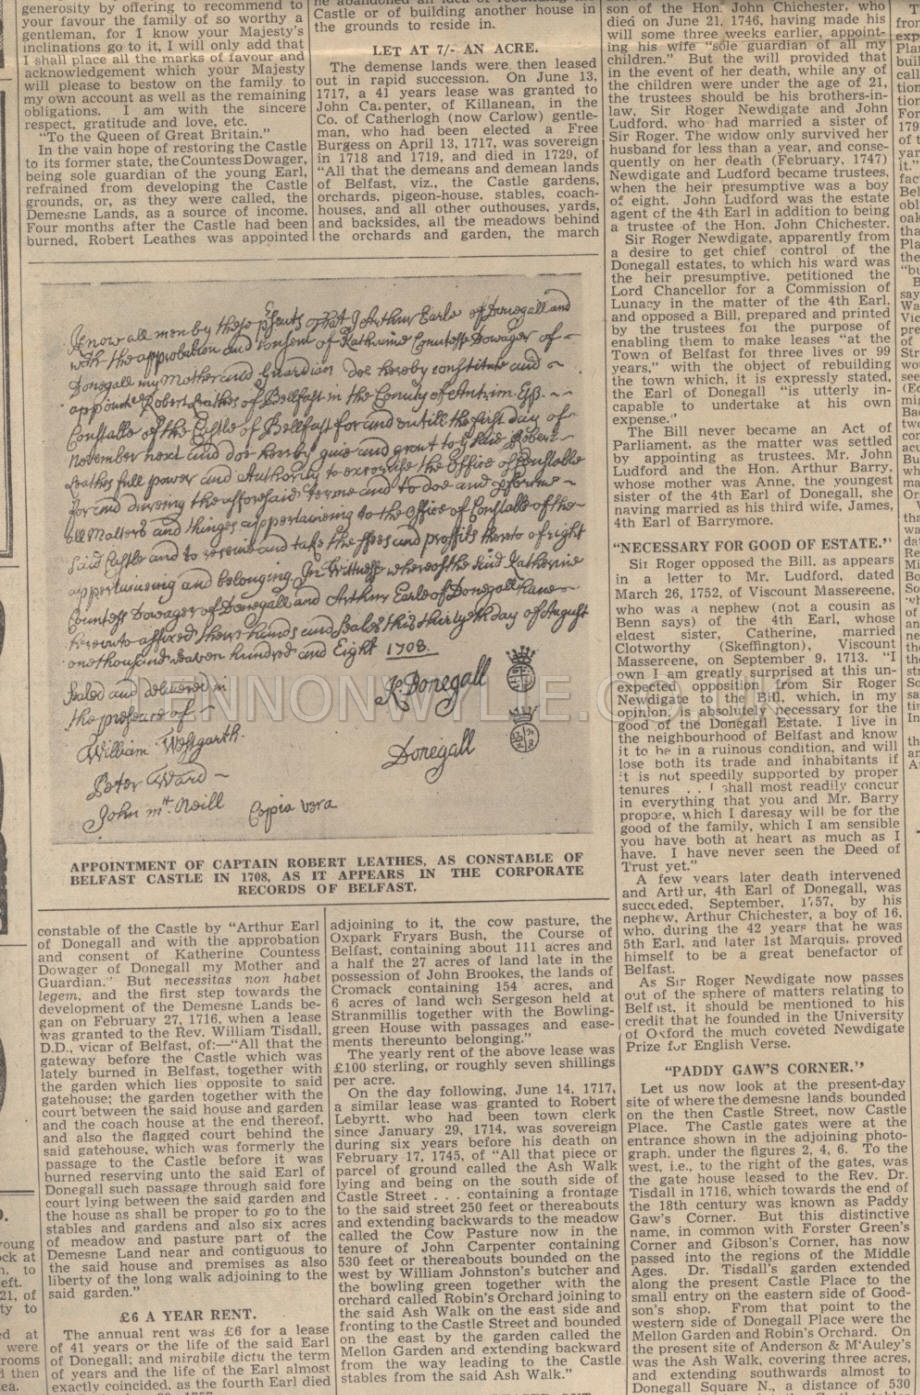 generosity by offering to recommend to
your favour the family of so worthy a
gentleman, for I know your Majesty's
inclinations go to it, I will only add that
I shall place all the marks of favour and
acknowledgement which your Majesty
will please to bestow on the family to
my own account as well as the remaining
obligations. I am with the sincere
respect, gratitude and love, etc.
"To the Queen of Great Britain."
In the vain hope of restoring the Castle
to its former state, the Countess Dowager,
being sole guardian of the young Earl,
refrained from developing the Castle
grounds, or, as they were called, the
Demesne Lands, as a source of income.
Four months after the Castle had been
burned, Robert Leathes was appointed
Castle or of building another house in
the grounds to reside in.
LET AT 7/- AN ACRE.
The demense lands were then leased
out in rapid succession. On June 13,
1717, a 41 years lease was granted to
John Ca.penter, of Killanean, in the
Co. of Catherlogh (now Carlow) gentle-
man, who had been elected a Free
Burgess on April 13, 1717, was sovereign
in 1718 and 1719, and died in 1729, of
"All that the demeans and demean lands
of Belfast, viz., the Castle gardens,
orchards, pigeon-house, stables, coach-
houses, and all other outhouses, yards,
and backsides, all the meadows behind
the orchards and garden, the march
Know all men by these psents That I Arthur Earle of Donegall and
with the approbation and consent of Katherine Countess Dowager of
Donegall my Mother and Guardian doe hereby constitute and
appoint Robert Leathes of Bellfast in the County of Antrim Esq.
Constable of the Castle of Bellfast for and untill the first day of
November next and doe hereby give and grant to ye said Robert
Leathes full power and Authority to exercise the Office of Constable
for and dureing the afforesaid terme and to doe and pforme
all Matters and things appertaineing to the office of Constable of the
said Castle and to receive and take the ffees and proffits thereto of right
appertaineing and belonging In Wittness whereof the said Katherine
Countess Dowager of Donegall and Arthur Earle of Donegall have
hereunto affixed theire hands and Seales this thirtyeth day of August
one thousand seaven hundred and Eight 1708.
Sealed and delivered in
the presence of
K: Donegall
Donegall
William Westgarth
Peter Ward
John Mt. Neill
Copia vera
PENNONWYLE.CO.UK
APPOINTMENT OF CAPTAIN ROBERT LEATHES, AS CONSTABLE OF
BELFAST CASTLE IN 1708, AS IT APPEARS IN THE CORPORATE
RECORDS OF BELFAST.
constable of the Castle by "Arthur Earl
of Donegall and with the approbation
and consent of Katherine Countess
Dowager of Donegall my Mother and
Guardian." But necessitas non habet
legem, and the first step towards the
development of the Demesne Lands be-
gan on February 27, 1716, when a lease
was granted to the Rev. William Tisdall,
D.D., vicar of Belfast, of:—"All that the
gateway before the Castle which was
lately burned in Belfast, together with
the garden which lies opposite to said
gatehouse; the garden together with the
court between the said house and garden
and the coach house at the end thereof,
and also the flagged court behind the
said gatehouse, which was formerly the
passage to the Castle before it was
burned reserving unto the said Earl of
Donegall such passage through said fore
court lying between the said garden and
the house as shall be proper to go to the
stables and gardens and also six acres
of meadow and pasture part of the
Demesne Land near and contiguous to
the said house and premises as also
liberty of the long walk adjoining to the
said garden."
£6 A YEAR RENT.
The annual rent was £6 for a lease
of 41 years or the life of the said Earl
of Donegall; and mirabile dictu the term
of years and the life of the Earl almost
exactly coincided, as the fourth Earl died
adjoining to it, the cow pasture, the
Oxpark Fryars Bush, the Course of
Belfast, containing about 111 acres and
a half the 27 acres of land late in the
possession of John Brookes, the lands of
Cromack containing 154 acres, and
6 acres of land wch Sergeson held at
Stranmillis together with the Bowling-
green House with passages and ease-
ments thereunto belonging."
The yearly rent of the above lease was
£100 sterling, or roughly seven shillings
per acre.
On the day following, June 14, 1717,
a similar lease was granted to Robert
Lebyrtt, who had been town clerk
since January 29, 1714, was sovereign
during six years before his death on
February 17, 1745, of "All that piece or
parcel of ground called the Ash Walk
lying and being on the south side of
Castle Street . . . containing a frontage
to the said street 250 feet or thereabouts
and extending backwards to the meadow
called the Cow Pasture now in the
tenure of John Carpenter containing
530 feet or thereabouts bounded on the
west by William Johnston's butcher and
the bowling green together with the
orchard called Robin's Orchard joining to
the said Ash Walk on the east side and
fronting to the Castle Street and bounded
on the east by the garden called the
Mellon Garden and extending backward
from the way leading to the Castle
stables from the said Ash Walk."
son of the Hon. John Chichester, who
died on June 21, 1746, having made his
will some three weeks earlier, appoint-
ing his wife "sole guardian of all my
children." But the will provided that
in the event of her death, while any of
the children were under the age of 21,
the trustees should be his brothers-in-
law, Sir Roger Newdigate and John
Ludford, who had married a sister of
Sir Roger. The widow only survived her
husband for less than a year, and conse-
quently on her death (February, 1747)
Newdigate and Ludford became trustees,
when the heir presumptive was a boy
of eight. John Ludford was the estate
agent of the 4th Earl in addition to being
a trustee of the Hon. John Chichester.
Sir Roger Newdigate, apparently from
a desire to get chief control of the
Donegall estates, to which his ward was
the heir presumptive, petitioned the
Lord Chancellor for a Commission of
Lunacy in the matter of the 4th Earl,
and opposed a Bill, prepared and printed
by the trustees for the purpose of
enabling them to make leases "at the
Town of Belfast for three lives or 99
years," with the object of rebuilding
the town which, it is expressly stated,
the Earl of Donegall "is utterly in-
capable to undertake at his own
expense."
The Bill never became an Act of
Parliament, as the matter was settled
by appointing as trustees, Mr. John
Ludford and the Hon. Arthur Barry,
whose mother was Anne, the youngest
sister of the 4th Earl of Donegall, she
having married as his third wife, James,
4th Earl of Barrymore.
"NECESSARY FOR GOOD OF ESTATE."
Sir Roger opposed the Bill, as appears
in a letter to Mr. Ludford, dated
March 26, 1752, of Viscount Massereene,
who was a nephew (not a cousin as
Benn says) of the 4th Earl, whose
eldest sister, Catherine, married
Clotworthy (Skeffington), Viscount
Massereene, on September 9, 1713. "I
own I am greatly surprised at this un-
expected opposition from Sir Roger
Newdigate to the Bill, which, in my
opinion, is absolutely necessary for the
good of the Donegall Estate. I live in
the neighbourhood of Belfast and know
it to be in a ruinous condition, and will
lose both its trade and inhabitants if
it is not speedily supported by proper
tenures . . . I shall most readily concur
in everything that you and Mr. Barry
propose, which I daresay will be for the
good of the family, which I am sensible
you have both at heart as much as I
have. I have never seen the Deed of
Trust yet."
A few years later death intervened
and Arthur, 4th Earl of Donegall, was
succeeded, September, 1757, by his
nephew, Arthur Chichester, a boy of 16,
who, during the 42 years that he was
5th Earl, and later 1st Marquis, proved
himself to be a great benefactor of
Belfast.
As Sir Roger Newdigate now passes
out of the sphere of matters relating to
Belfast, it should be mentioned to his
credit that he founded in the University
of Oxford the much coveted Newdigate
Prize for English Verse.
"PADDY GAW'S CORNER."
Let us now look at the present-day
site of where the demesne lands bounded
on the then Castle Street, now Castle
Place. The Castle gates were at the
entrance shown in the adjoining photo-
graph, under the figures 2, 4, 6. To the
west, i.e., to the right of the gates, was
the gate house leased to the Rev. Dr.
Tisdall in 1716, which towards the end of
the 18th century was known as Paddy
Gaw's Corner. But this distinctive
name, in common with Forster Green's
Corner and Gibson's Corner, has now
passed into the regions of the Middle
Ages. Dr. Tisdall's garden extended
along the present Castle Place to the
small entry on the eastern side of Good-
son's shop. From that point to the
western side of Donegall Place were the
Mellon Garden and Robin's Orchard. On
the present site of Anderson & M'Auley's
was the Ash Walk, covering three acres,
and extending southwards almost to
Donegall Square N., a distance of 530